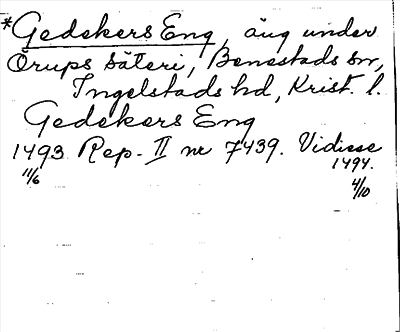 *Gedekers Eng, äng under
Örups säteri, Benestads sn,
Ingelstads hd, Krist. l.
Gedekers Eng
1493 Rep. II nr 7439. Vidisse
1494.
11/6 4/10